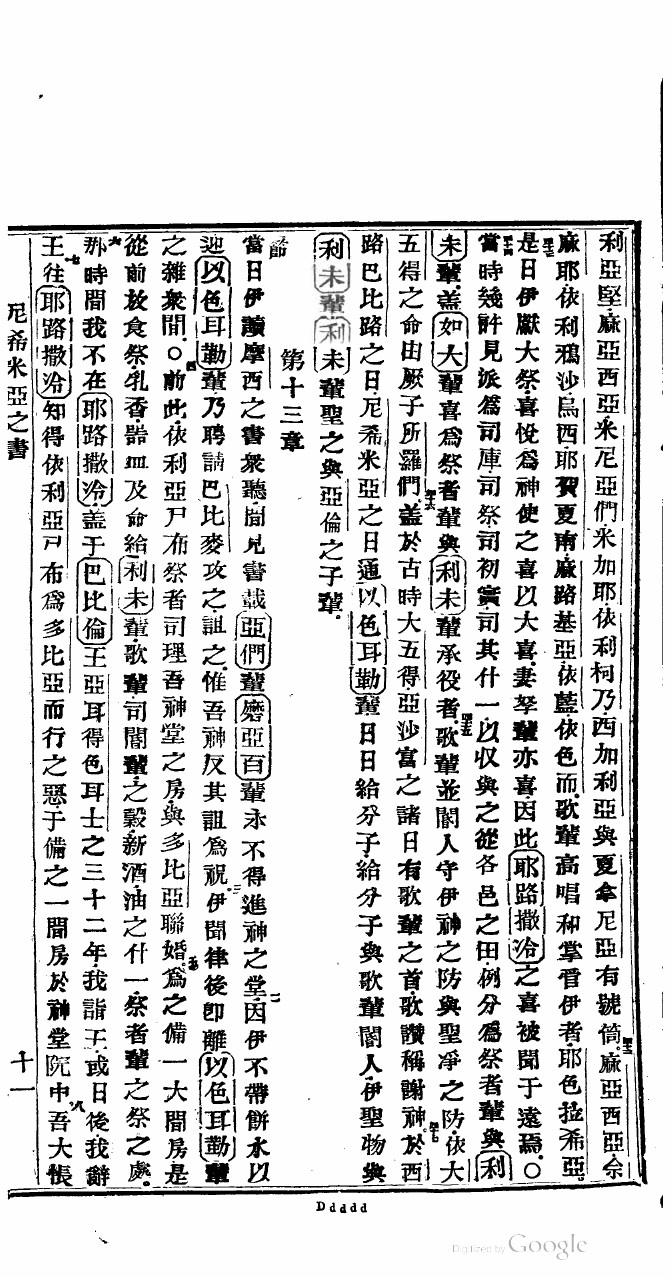 利亞堅麻亞西亞米尼亞們米加耶依利柯乃西加利亞與夏拿尼亞有號筒四十二麻亞西亞佘
麻耶依利鴉沙烏西耶賀夏南麻路基亞依藍依色而歌輩高唱和掌管伊者耶色拉希亞
四十三是日伊獻大祭喜悅為神使之喜以大喜妻孥輩亦喜因此耶路撒冷之喜被聞于遠焉〇
四十四當時幾許見派為司庫司祭司初實司其什一以収與之從各邑之田例分為祭者輩與利
未輩蓋如大輩喜為祭者輩與利未輩承役者四十五歌輩並閽人守伊神之防與聖凈之防依大
五得之命由厥子所羅們四十六蓋於古時大五得亞沙富之諸日有歌輩之首歌讚稱謝神於四十七西
路巴比路之日尼希米亞之日通以色耳勒輩日日給分子給分子與歌輩閽人伊聖物與
利未輩利未輩聖之與亞倫之子輩
第十三章
節當日伊讀摩西之書衆聽間見書載亞們輩磨亞百輩永不得進神之堂二因伊不帶餅水以
迎以色耳勒輩乃聘請巴比麥攻之詛之惟吾神反其詛為祝三伊聞律後即離以色耳勒輩
之雜衆間〇四前此依利亞尸布祭者司理吾神堂之房與多比亞聯婚五為之備一大間房是
從前放食祭乳香器皿及命給利未輩歌輩司閽輩之穀新酒油之什一祭者輩之祭之處
六那時間我不在耶路撒冷蓋于巴比倫王亞耳得色耳士之三十二年我詣王或日後我辭
王七往耶路撒冷知得依利亞尸布為多比亞而行之惡于備之一間房於神堂院中八吾大悵
尼希米亞之書
十一
Ddddd
Digitized by Google